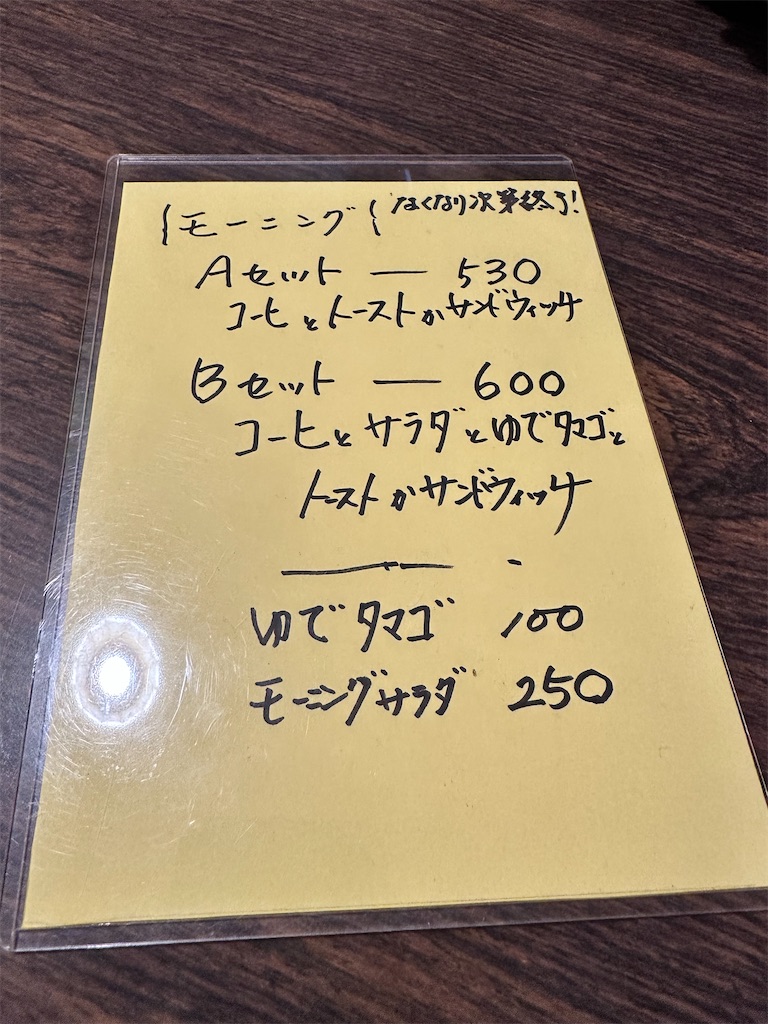 {モーニング{ なくなり次第終了!
Aセット — 530
コーヒとトーストかサンドウィッチ
Bセット — 600
コーヒとサラダとゆでタマゴと
トーストかサンドウィッチ
ゆでタマゴ 100
モーニングサラダ 250